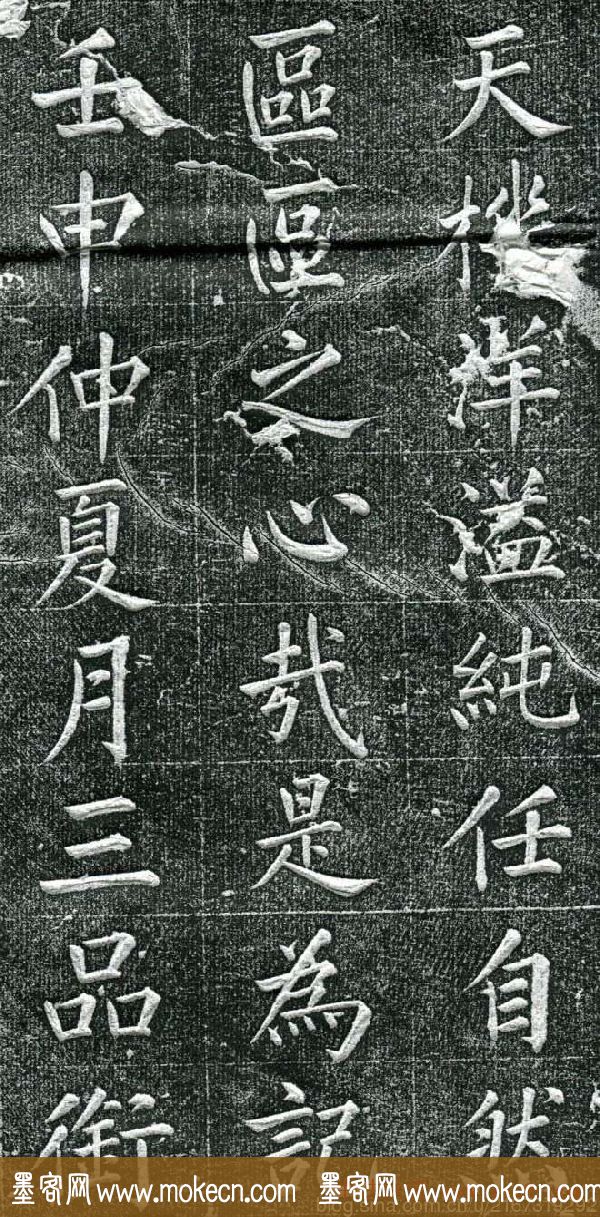 天機洋溢純任自然
區區之心哉是為記
壬申仲夏月三品銜
墨客网 www.mokecn.com 墨客网 www.mokecn.com